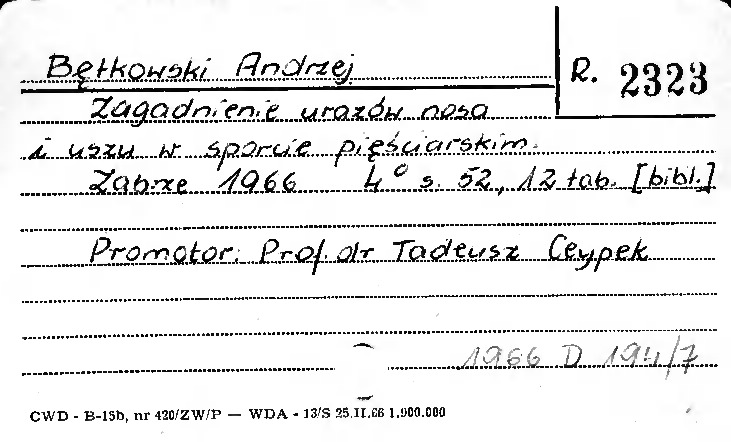 Bętkowski Andrzej R. 2323
Zagadnienie urazów nosa
i uszu w sporcie pięściarskim.
Zabrze 1966 4° s. 52, 12 tab. [bibl.]
Promotor: Prof. dr Tadeusz Ceypek
1966 D 194/7
CWD - B-15b, nr 420/ZW/P — WDA - 13/S 25.II.66 1.900.000